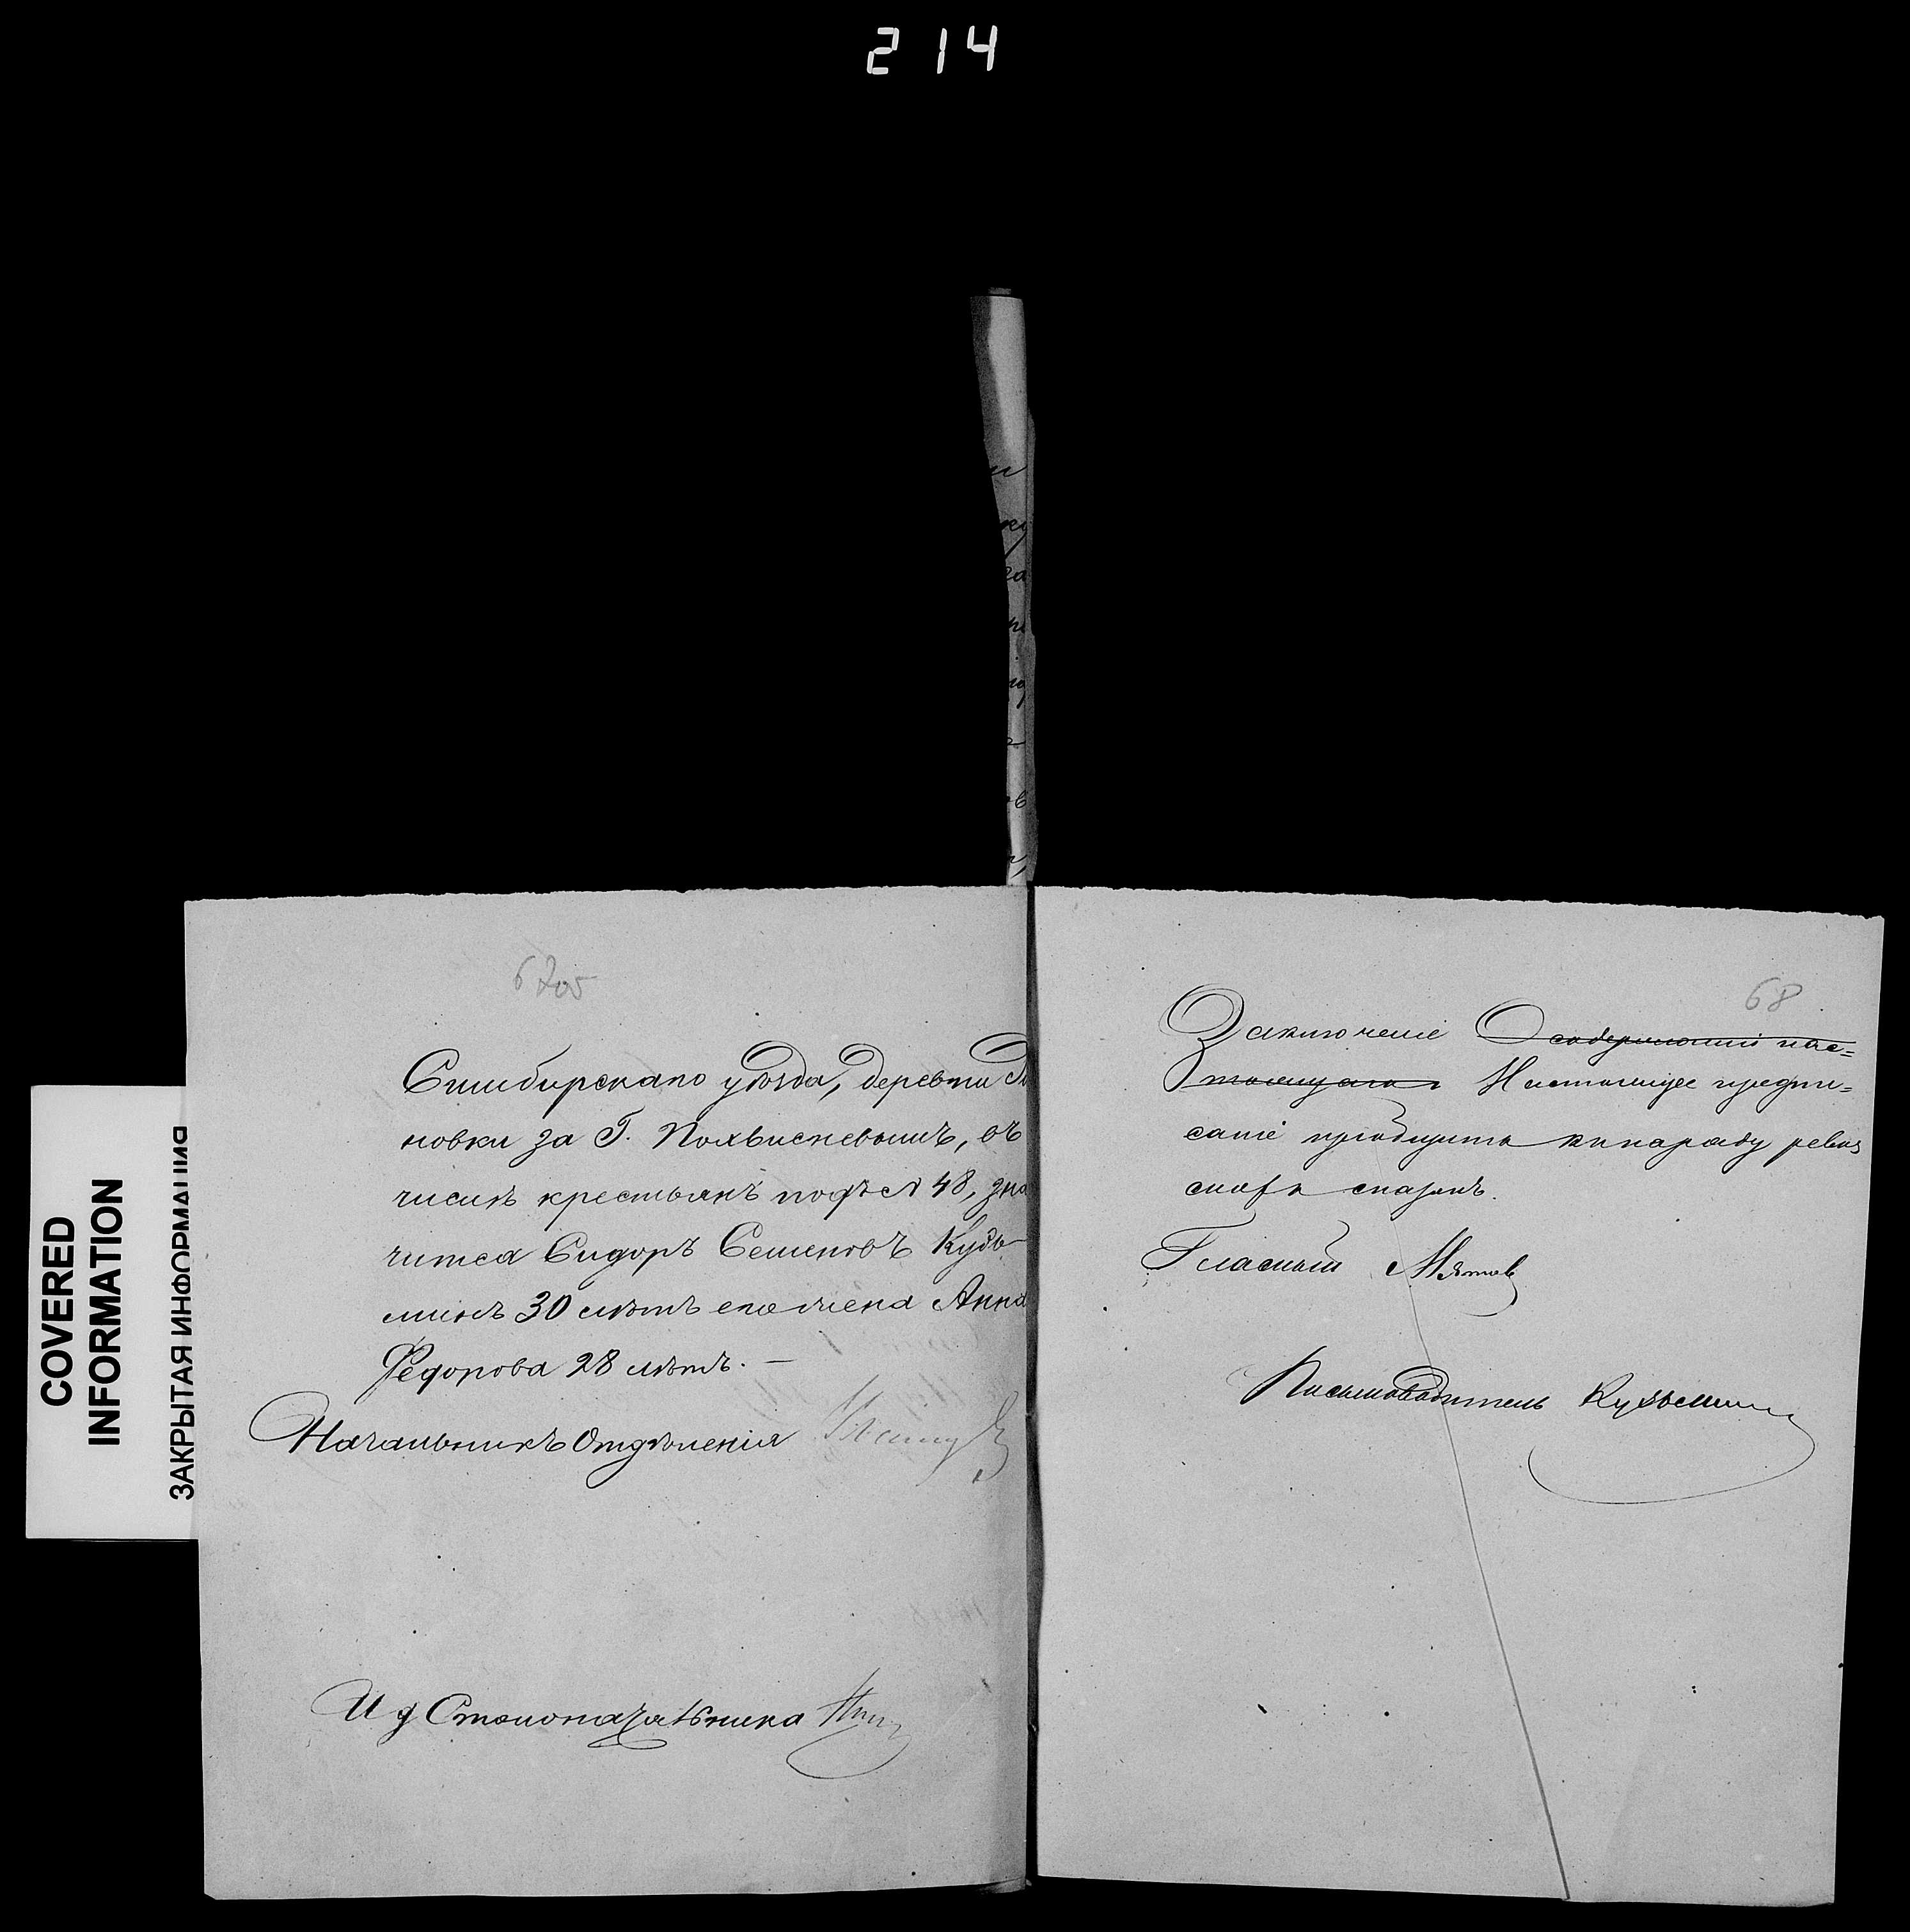 214
COVERED
INFORMATION
ЗАКРЫТАЯ ИНФОРМАЦИЯ
67об
Симбирскаго уѣзда, деревни
новки за Г. Похвисневымъ, въ
числѣ крестьянъ подъ № 48, зна
чится Сидоръ Семеновъ Кузь
минъ 30 лѣтъ его жена Анна
Федорова 28 лѣтъ. —
Начальникъ Отдѣленія
И д Столоначальника
68
Заключеніе
Настоящее предпи=
саніе пріобщить къ наряду ревиз
скихъ сказокъ.
Гласный Мятов
Письмоводитель Кузьмин